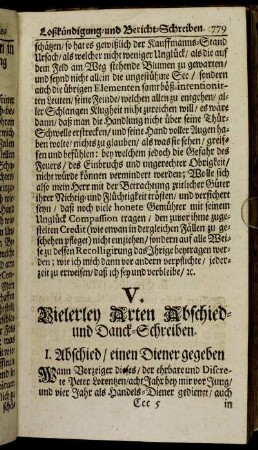 Loßkündigung-und Bericht-Schreiben. 779
schätzen/ so hat es gewißlich der Kauffmanns-Stand
Ursach/ als welcher nicht weniger Unglück/ als die auf
dem Feld am Weg stehende Blumen zu gewarten/
und seynd nicht allein die ungestühme See/ sondern
auch die übrigen Elementen samt böß-intentionir-
ten Leuten/ seine Feinde/ welchen allen zu entgehen/ al-
ler Schlangen Klugheit nicht zureichen will/ es wäre
dann/ daß man die Handlung nicht über seine Thür-
Schwelle erstrecken/ und seine Hand voller Augen ha-
ben wolte/ nichts zu glauben/ als was sie sehen/ greif-
fen und befühlen: bey welchem jedoch die Gefahr des
Feuers/ des Einbruchs und ungerechter Obrigkeit/
nicht würde können vermindert werden; Wolle sich
also mein Herr mit der Betrachtung zeitlicher Güter
ihrer Nichtig-und Flüchtigkeit trösten/ und versichert
seyn/ daß noch viele honete Gemühter mit seinem
Unglück Compassion tragen/ den zuvor ihme zuge-
stelten Credit (wie etwan in dergleichen Fällen zu ge-
schehen pfleget) nicht entziehen/ sondern auf alle Wei-
se zu dessen Recolligirung das Ihrige beytragen wer-
den; wie ich mich dann vor andern verpflichte/ jeder-
zeit zu erweisen/ daß ich sey und verbleibe/ ꝛc.
V.
Vielerley Arten Abschied-
und Danck-Schreiben.
1. Abschied/ einen Diener gegeben
Wann Vorzeiger dieses/ der ehrbare und Discre-
te Peter Lorentzen/ acht Jahr bey mir vor Jung/
und vier Jahr als Handels-Diener gedienet/ auch
Ccc 5 in